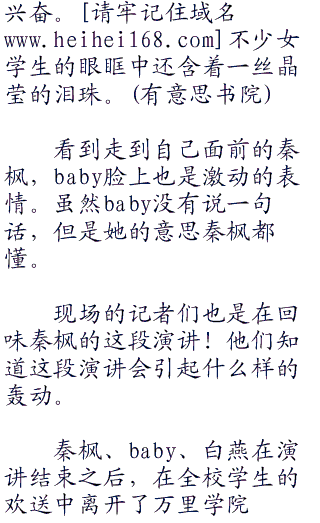 兴奋。[请牢记住域名
www.heihei168.com]不少女
学生的眼眶中还含着一丝晶
莹的泪珠。(有意思书院)
看到走到自己面前的秦
枫，baby脸上也是激动的表
情。虽然baby没有说一句
话，但是她的意思秦枫都
懂。
现场的记者们也是在回
味秦枫的这段演讲！他们知
道这段演讲会引起什么样的
轰动。
秦枫、baby、白燕在演
讲结束之后，在全校学生的
欢送中离开了万里学院